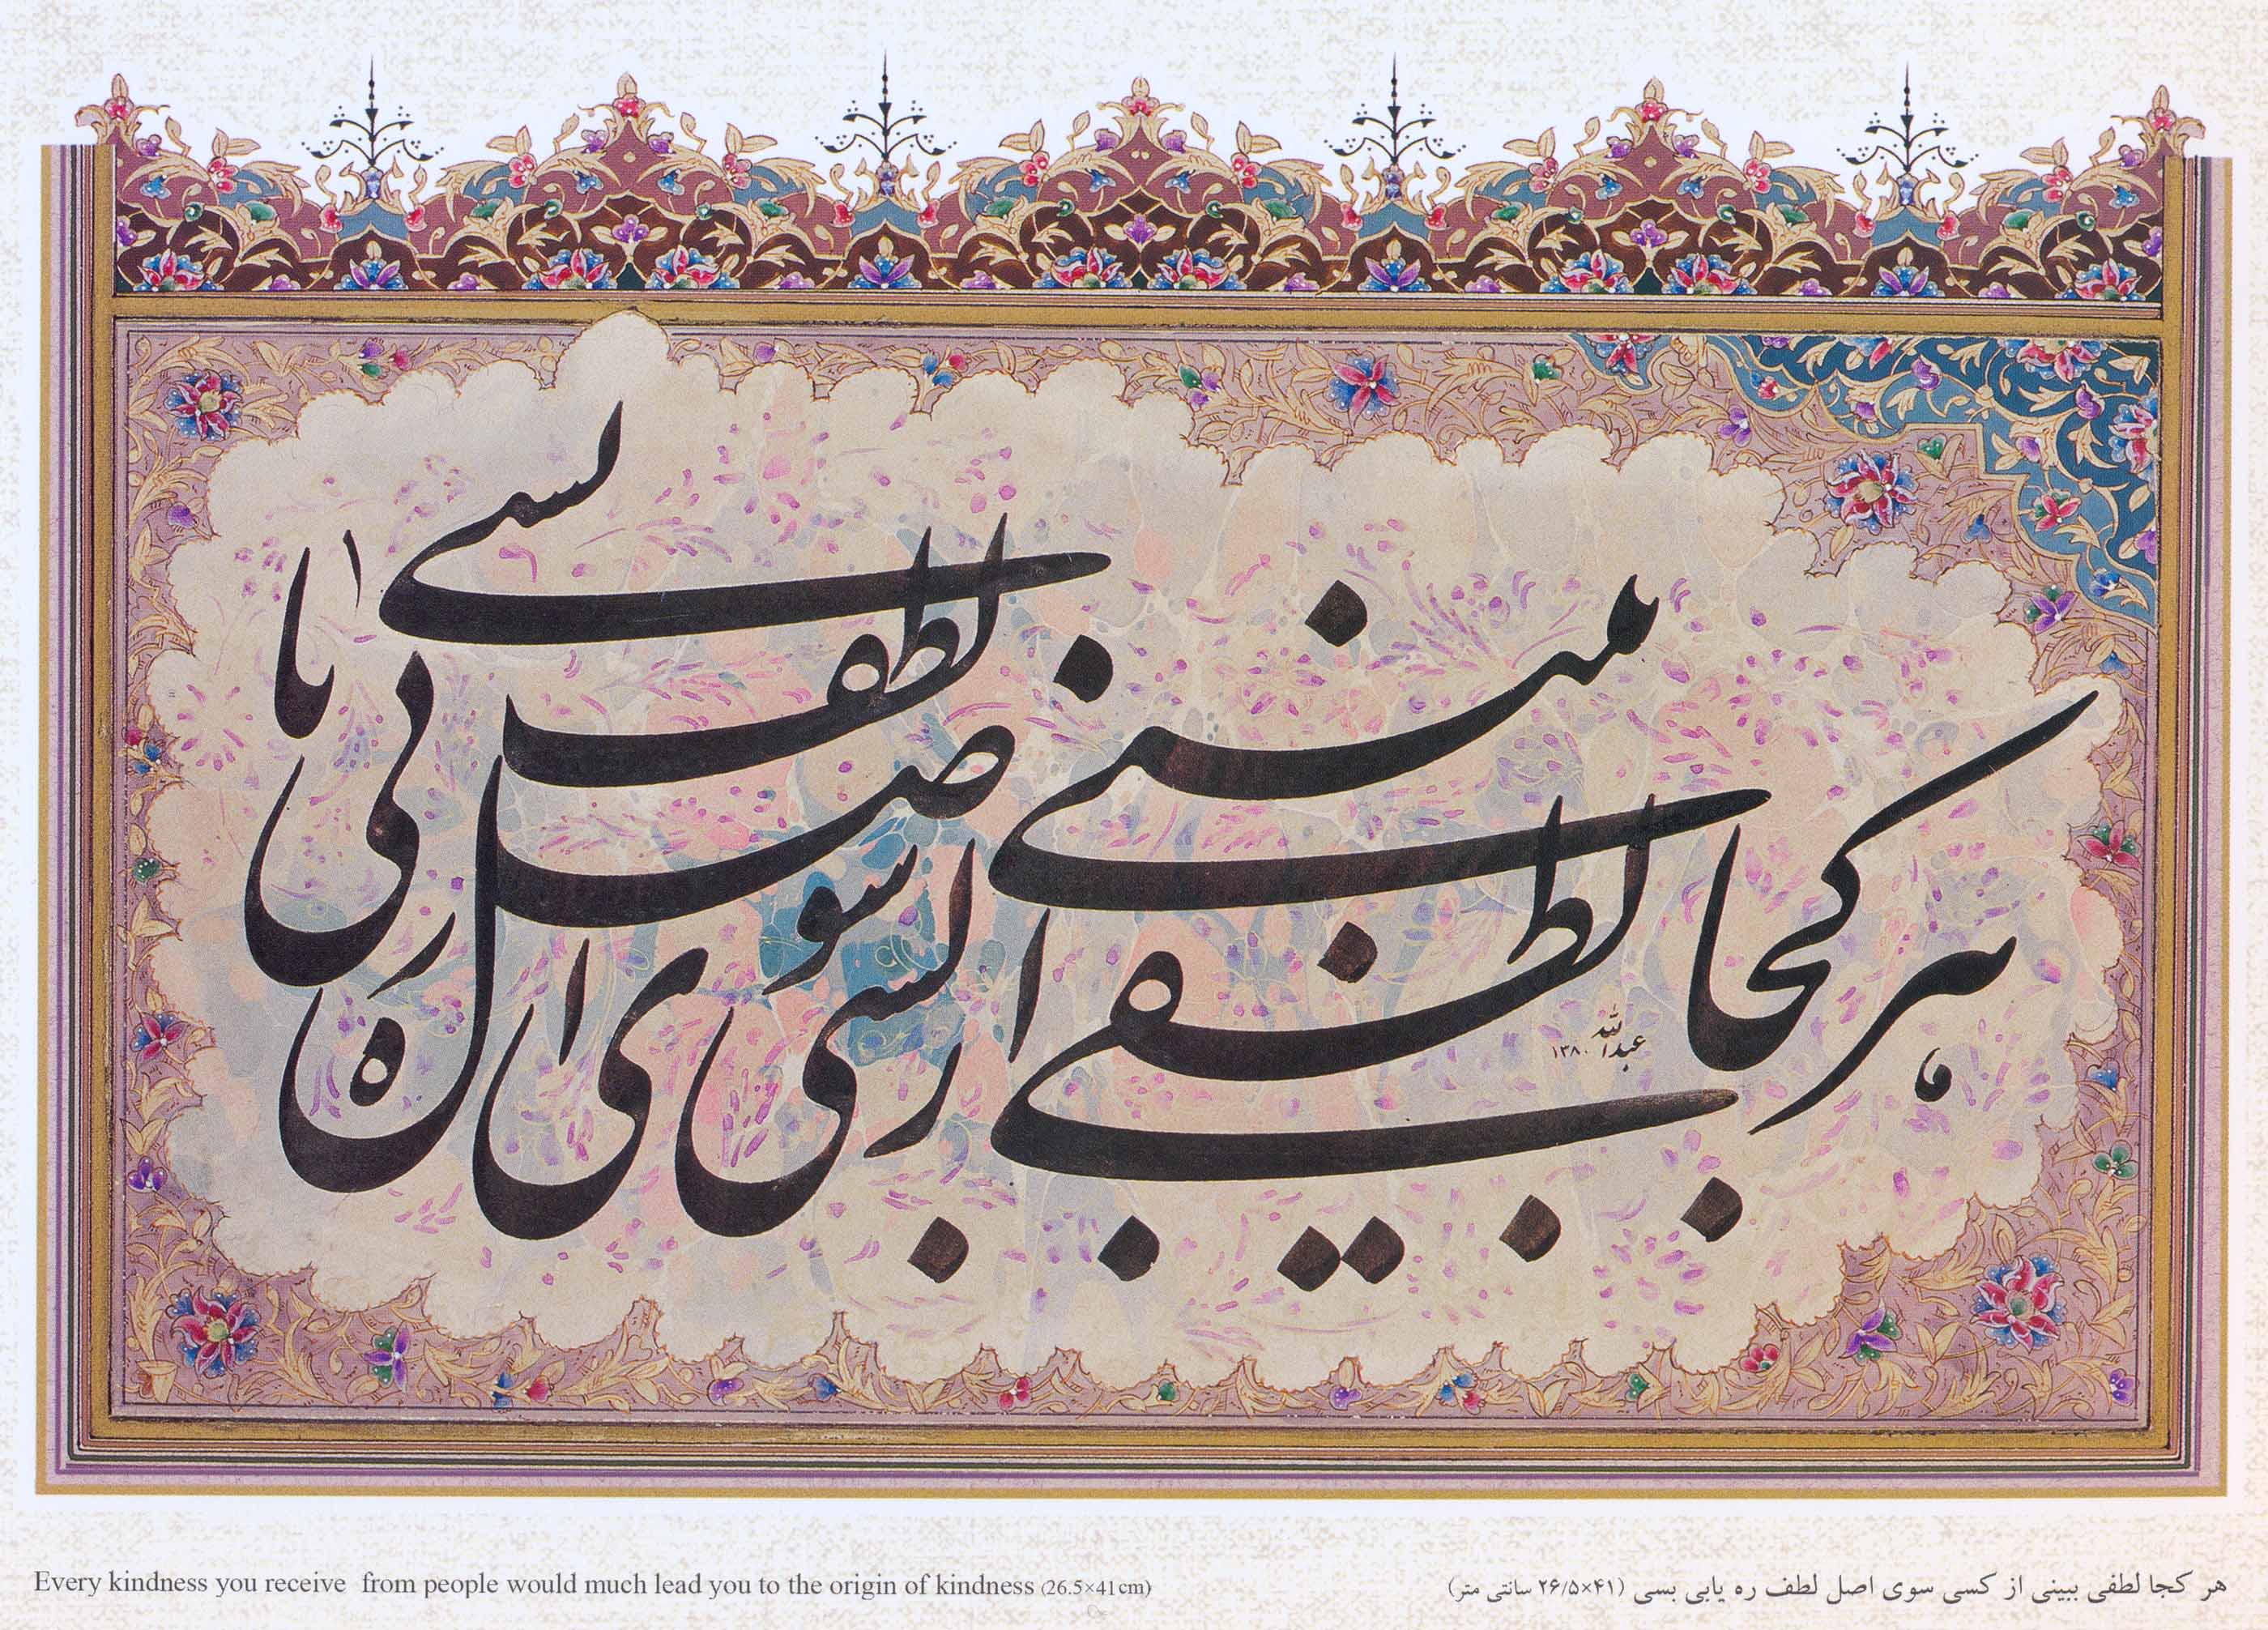 هر کجا لطفی ببینی از کسی
سوی اصل لطف ره یابی بسی
عبدالله ۱۳۸۰
Every kindness you receive from people would much lead you to the origin of kindness (26.5×41cm)
هر کجا لطفی ببینی از کسی سوی اصل لطف ره یابی بسی (۲۶/۵×۴۱ سانتی متر)